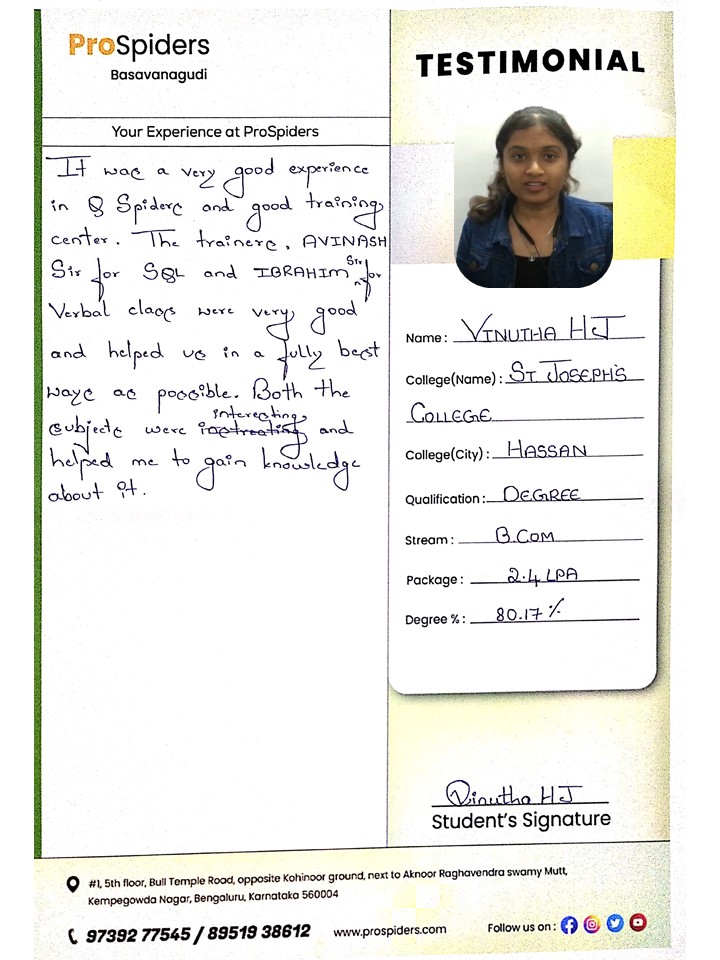 ProSpiders
Basavanagudi
Your Experience at ProSpiders
It was a very good experience
in Q Spiders and good training
center. The trainers, AVINASH
Sir for SQL and IBRAHIM Sir for
Verbal class were very good
and helped us in a fully best
ways as possible. Both the
interesting
subjects were and
helped me to gain knowledge
about it.
TESTIMONIAL
Name: VINUTHA HJ
College(Name): ST JOSEPH'S
COLLEGE
College(City): HASSAN
Qualification: DEGREE
Stream: B.COM
Package: 2.4 LPA
Degree %: 80.17 %
Vinutha HJ
Student's Signature
#1, 5th floor, Bull Temple Road, opposite Kohinoor ground, next to Aknoor Raghavendra swamy Mutt,
Kempegowda Nagar, Bengaluru, Karnataka 560004
97392 77545 / 89519 38612 www.prospiders.com Follow us on: